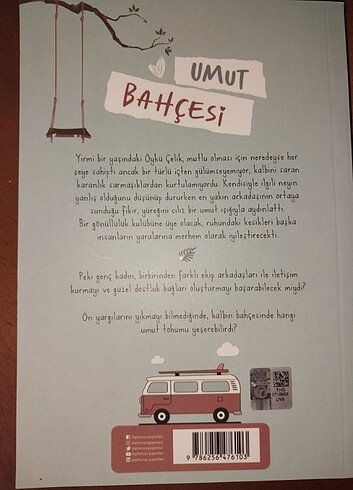 UMUT
BAHÇESİ
Yirmi bir yaşındaki Öykü Çelik, mutlu olması için neredeyse her
şeye sahipti ancak bir türlü içten gülümseyemiyor, kalbini saran
karanlık sarmaşıklardan kurtulamıyordu. Kendisiyle ilgili neyin
yanlış olduğunu düşünüp dururken en yakın arkadaşının ortaya
sunduğu fikir, yüreğini cılız bir umut ışığıyla aydınlattı.
Bir gönüllülük kulübüne üye olacak, ruhundaki kesikleri başka
insanların yaralarına merhem olarak iyileştirecekti.
Peki genç kadın, birbirinden farklı ekip arkadaşları ile iletişim
kurmayı ve güzel dostluk bağları oluşturmayı başarabilecek miydi?
Ön yargılarını yıkmayı bilmediğinde, kalbin bahçesinde hangi
umut tohumu yeşerebilirdi?
9 786256 476103